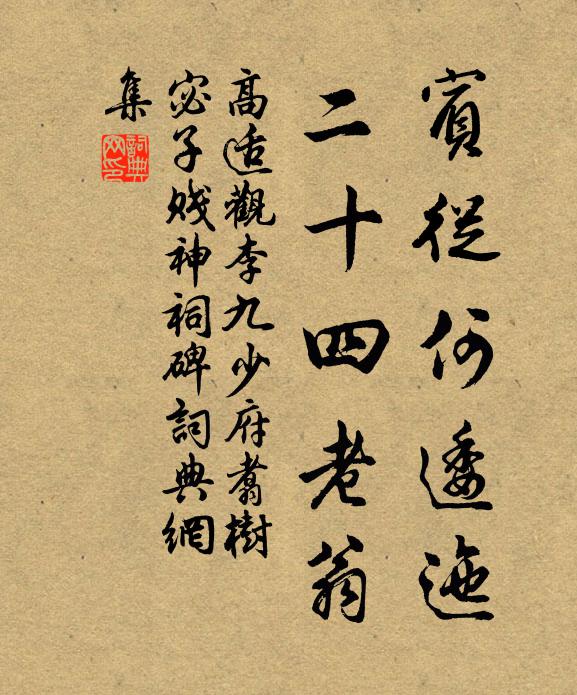 賓從何逶迤
二十四老翁
高适觀李九少府翥樹
宓子賤神祠碑詞典網
集
詞典網印